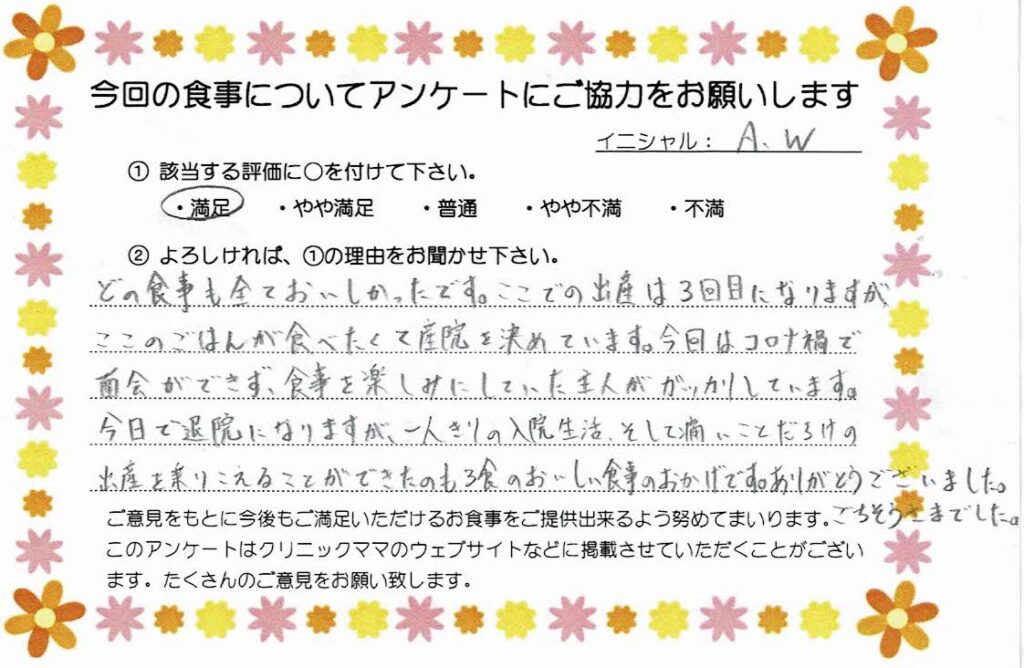 今回の食事についてアンケートにご協力をお願いします
イニシャル： A.W
① 該当する評価に○を付けて下さい。
・満足 ・やや満足 ・普通 ・やや不満 ・不満
② よろしければ、①の理由をお聞かせ下さい。
どの食事も全ておいしかったです。ここでの出産は3回目になりますが、
ここのごはんが食べたくて産院を決めています。今回はコロナ禍で
面会ができず、食事を楽しみにしていた主人がガッカリしています。
今日で退院になりますが、一人きりの入院生活、そして痛いことだらけの
出産を乗りこえることができたのも3食のおいしい食事のおかげです。ありがとうございました。
ごちそうさまでした。
ご意見をもとに今後もご満足いただけるお食事をご提供出来るよう努めてまいります。
このアンケートはクリニックママのウェブサイトなどに掲載させていただくことがござい
ます。たくさんのご意見をお願い致します。